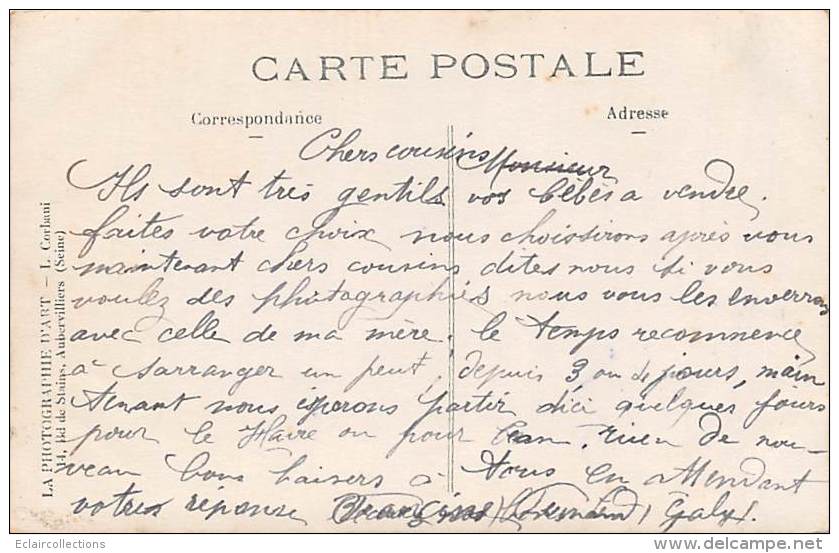 CARTE POSTALE
Correspondance
Adresse
LA PHOTOGRAPHIE D'ART — L. Corbani
Bd de Stains, Aubervilliers (Seine)
Chers cousins Monsieur
Ils sont très gentils vos bébés a vendre.
faites votre choix nous choissirons après vous
maintenant chers cousins dites nous si vous
voulez des photographies nous vous les enverrons
avec celle de ma mère. le temps recommence
a sarranger un peut, depuis 3 ou 4 jours, main
tenant nous esperons partir dici quelques jours
pour le Havre ou pour . rien de nou-
veau bons baisers a tous en attendant
votre reponse Galy.
Eclaircollections
delcampe.net